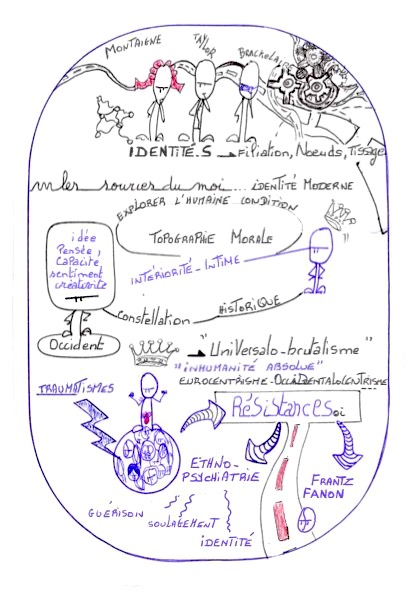 MONTAIGNE
TAYLOR
BRACKELAIRE
IDENTITÉ.S Filiation, Nœuds, Tissage
les sources du moi.... IDENTITÉ MODERNE
EXPLORER L'HUMAINE CONDITION
TOPOGRAPHIE MORALE
idée
Pensée,
Capacité,
sentiment
créativité
INTÉRIORITÉ - INTIME
Constellation HISTORIQUE
Occident
"Universalo-brutalisme"
"INHUMANITÉ ABSOLUE"
EUROCENTRISME - OCCIDENTALOCENTRISME
TRAUMATISMES
Résistances
ETHNO-
PSYCHIATRIE
FRANTZ
FANON
GUÉRISON
SOULAGEMENT
IDENTITÉ